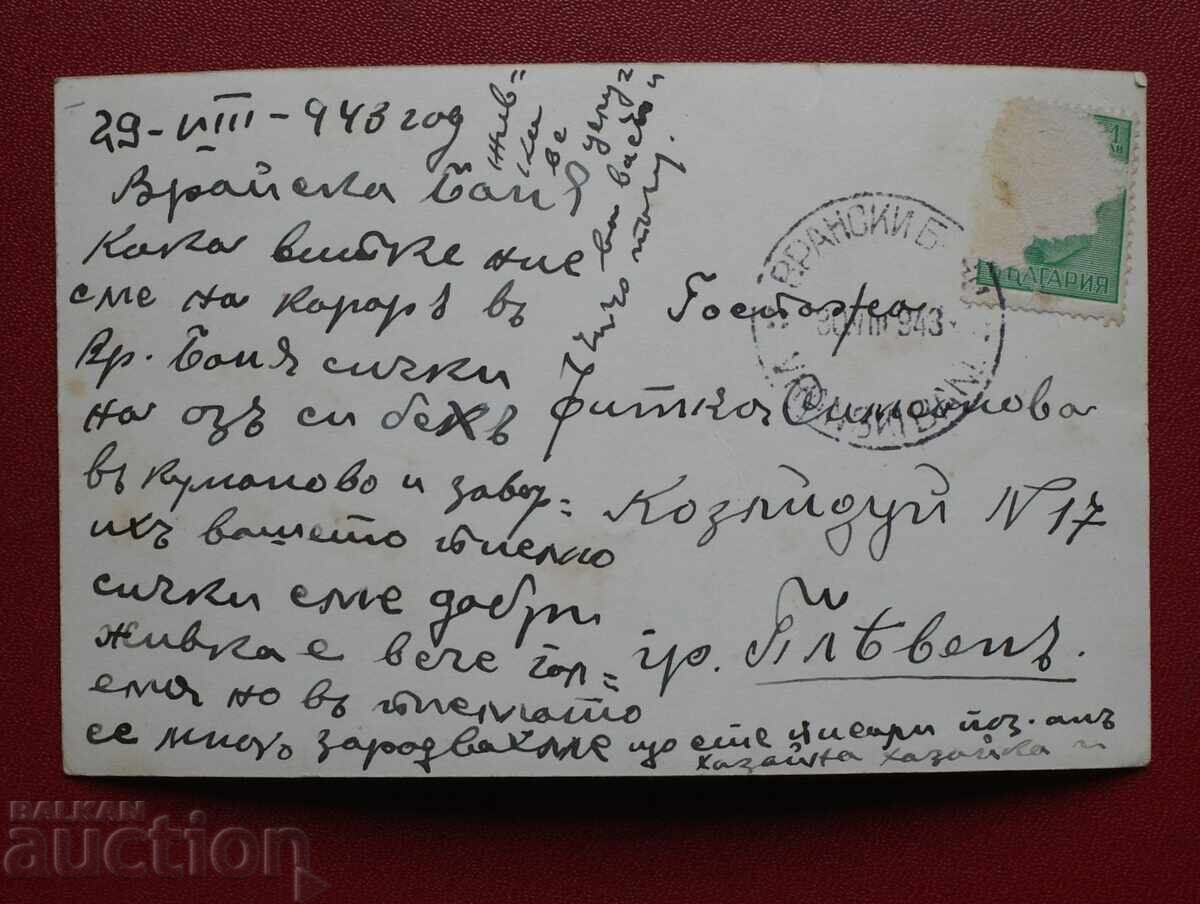 29-VIII-943 год
Врайска Баня
Кака витке ние
сме на караръ въ
Вр. Баня сички
на азъ си бехъ
въ куманово и завар=
ихъ вашето писмо
сички сме добри
Живка е вече гол=
ема но въ писмото
се много зарадвахме що сте писали поз. отъ
хазайна хазайка и
Жив=
ка
ве
целу
ва
васъ и
много
Госпожа
Фитка Симеонова
Козлудуй N 17
гр. Плѣвенъ.
ВРАНСКИ Б
30 VIII 943
VRANSKI BAN
1
ЛВ
БЪЛГАРИЯ
BALKAN
auction